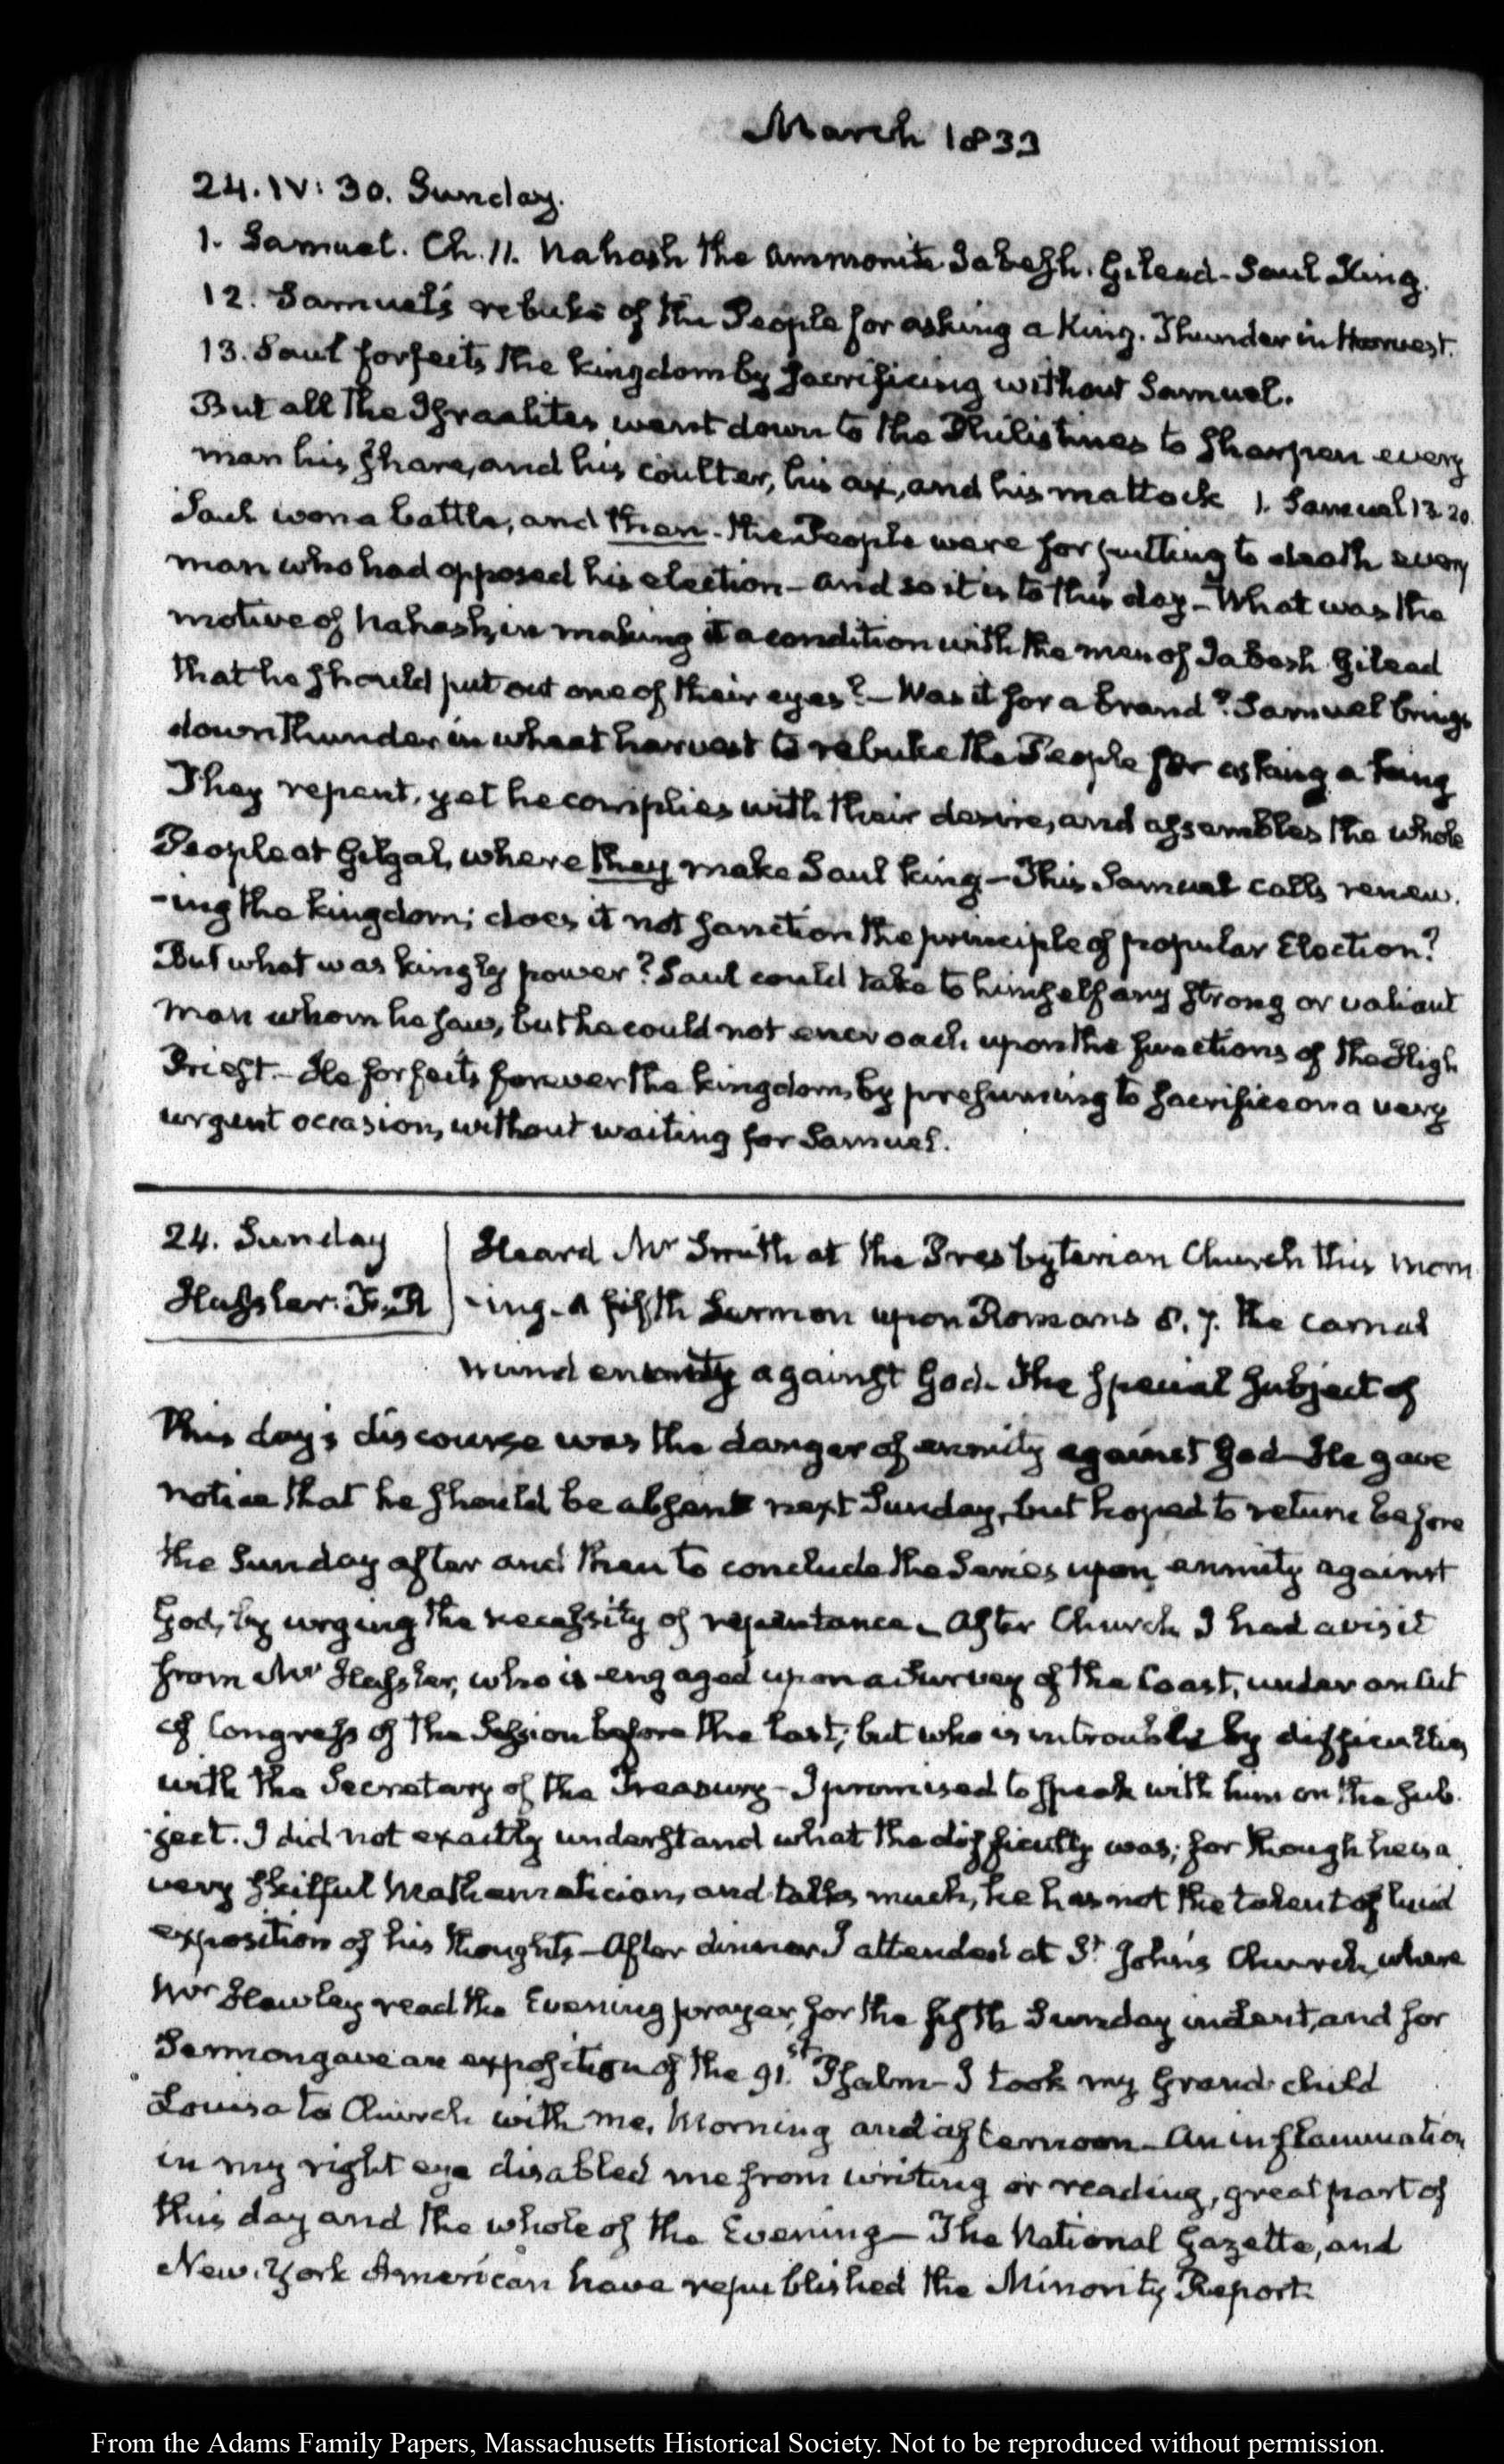 March 1833
24. IV: 30. Sunday.
1. Samuel. Ch. 11. Nahash the Ammonite Jabesh. Gilead - Saul King.
12. Samuel's rebuke of the People for asking a King. Thunder in Harvest.
13. Saul forfeits the kingdom by sacrificing without Samuel.
But all the Israelites went down to the Philistines to sharpen every
man his share, and his coulter, his ax, and his mattock 1. Samuel 13. 20.
Saul won a battle, and then - the People were for putting to death every
man who had opposed his election - and so it is to this day - What was the
motive of Nahash, in making it a condition with the men of Jabesh Gilead
that he should put out one of their eyes? - Was it for a brand? Samuel brings
down thunder in wheat harvest to rebuke the People for asking a king
They repent, yet he complies with their desire, and assembles the whole
People at Gilgal, where they make Saul king - This Samuel calls renew-
-ing the kingdom; does it not sanction the principle of popular Election?
But what was kingly power? Saul could take to himself any strong or valiant
man whom he saw, but he could not encroach upon the functions of the High
Priest. - He forfeits forever the kingdom, by presuming to sacrifice on a very
urgent occasion, without waiting for Samuel.
24. Sunday
Hassler. F. R
Heard Mr Smith at the Presbyterian Church this morn
-ing - A fifth Sermon upon Romans 8. 7. The carnal
mind enmity against God. The special subject of
this day's discourse was the danger of enmity against God - He gave
notice that he should be absent next Sunday, but hoped to return before
the Sunday after and then to conclude the Series upon enmity against
God, by urging the necessity of repentance - After Church I had a visit
from Mr Hassler, who is engaged upon a Survey of the Coast, under an Act
of Congress of the Session before the last; but who is in trouble by difficulties
with the Secretary of the Treasury - I promised to speak with him on the sub-
-ject. I did not exactly understand what the difficulty was; for though he is a
very skilful Mathematician, and talks much, he has not the talent of lucid
exposition of his thoughts - After dinner I attended at St. John's Church, where
Mr Hawley read the Evening prayer, for the fifth Sunday in Lent, and for
Sermon gave an exposition of the 91.st Psalm - I took my Grand-child
Louisa to Church with me, Morning and afternoon - An inflammation
in my right eye disabled me from writing or reading, great part of
this day and the whole of the Evening - The National Gazette, and
New-York American have republished the Minority Report.
From the Adams Family Papers, Massachusetts Historical Society. Not to be reproduced without permission.